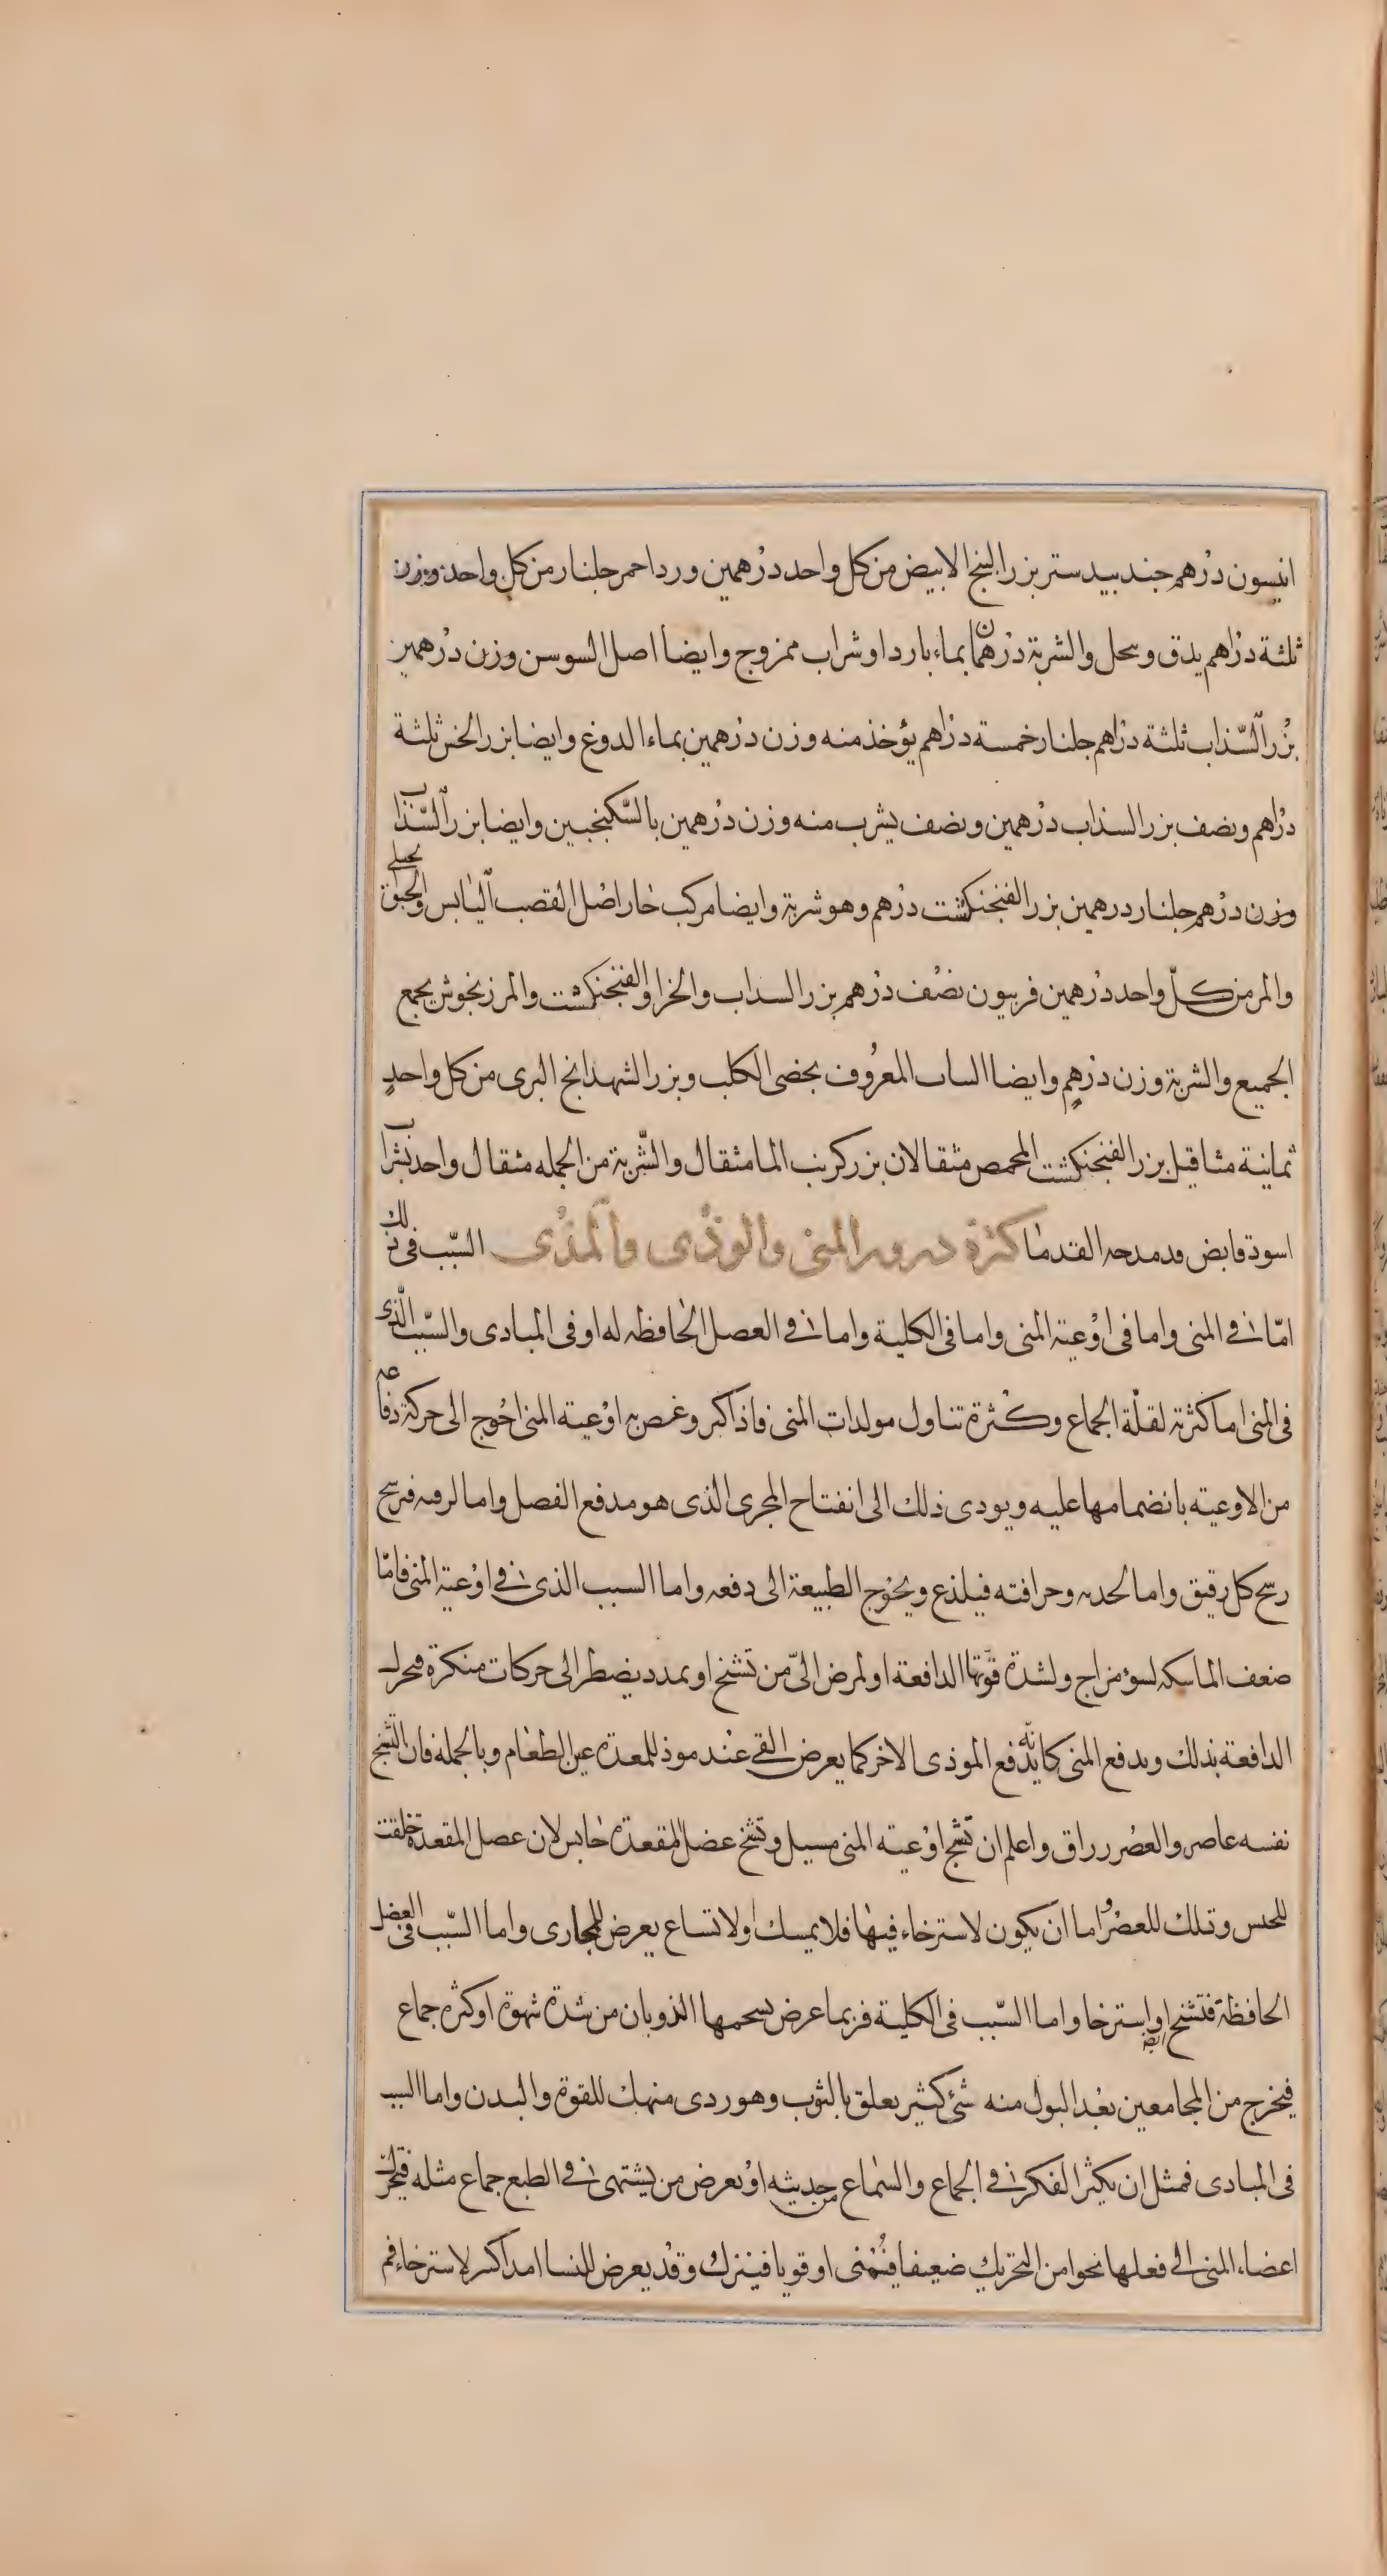 انيسون درهم جندبيدستر بزر البنج الابيض من كل واحد درهمين ورد احمر جلنار من كل واحد وزن
ثلثة دراهم يدق وسحل والشربة درهمان بماء بارد او شراب ممزوج وايضا اصل السوسن وزن درهمين
بزر السّذاب ثلثة دراهم جلنار خمسة دراهم يؤخذ منه وزن درهمين بماء الدوغ وايضا بزر الخس ثلثة
دراهم ونصف بزر السذاب درهمين ونصف يشرب منه وزن درهمين بالسّكنجبين وايضا بزر السّذاب
وزن درهم جلنار درهمين بزر الفنجنكشت درهم وهو شربة وايضا مركب حار اصل القصب اليابس والحبق
والمر من كلّ واحد درهمين فربيون نصف درهم بزر السداب والخزا والفنجنكشت والمرزنجوش يجمع
الجميع والشربة وزن درهم وايضا الساب المعروف بخصى الكلب وبزر الشهدانج البرى من كل واحدٍ
ثمانية مثاقيل بزر الفنجنكشت المحمص مثقالان بزر كرنب الما مثقال والشّربة من الجمله مثقال واحد بشراب
اسود قابض قد مدحه القدما كثرة درور المنى والوذى والمذى السّبب فى ذلك
امّا فى المنى واما فى اوعية المنى واما فى الكلية واما فى العصل الحافظه له او فى المبادى والسّبب الّذى
فى المنى اما كثرته لقلّة الجماع وكثرة تناول مولدات المنى فاذا كبر وغص به اوعية المنى احوج الى حركة دفاعه
من الاوعيته بانضمامها عليه ويودى ذلك الى انفتاح المجرى الذى هو مدفع الفصل واما لرقته فرسح
رسح كل رقيق واما لحدته وحرافته فيلذع ويحوج الطبيعة الى دفعه واما السبب الذى فى اوعية المنى فامّا
ضعف الماسكه لسؤ مزاج ولشدة قوّتها الدافعة او لمرض الىّ من تشنج او تمدد يضطر الى حركات منكرة فتحرك
الدافعة بذلك وتدفع المنى كانّه يدفع الموذى الاخر كما يعرض القى عند موذ للمعدة عن الطعام وبالجمله فان التشنج
نفسه عاصر والعصر زراق واعلم ان تشنج اوعيته المنى مسيل وتشنج عضل المقعدة حابس لان عصل المقعدة خلقت
للحبس وتلك للعصر واما ان يكون لاسترخاء فيها فلا يمسك اولا تساع يعرض للمجارى واما السّبب فى العضل
الحافظة فتشنج او استرخا واما السّبب فى الكلية فربما عرض لسحمها الذوبان من شدة شهوة او كثره جماع
فيخرج من المجامعين بعد البول منه شئ كثير يعلق بالثوب وهو ردى منهك للقوة والبدن واما السبب
فى المبادى فمثل ان يكثر الفكر فى الجماع والسماع من حديثه او يعرض من يشتهى فى الطبع جماع مثله فتحرك
اعضاء المنى الى فعلها نحوا من التحريك ضعيفا فتمنى او قويا فينزل وقد يعرض للنسا امداكسر لاسترخاء فم